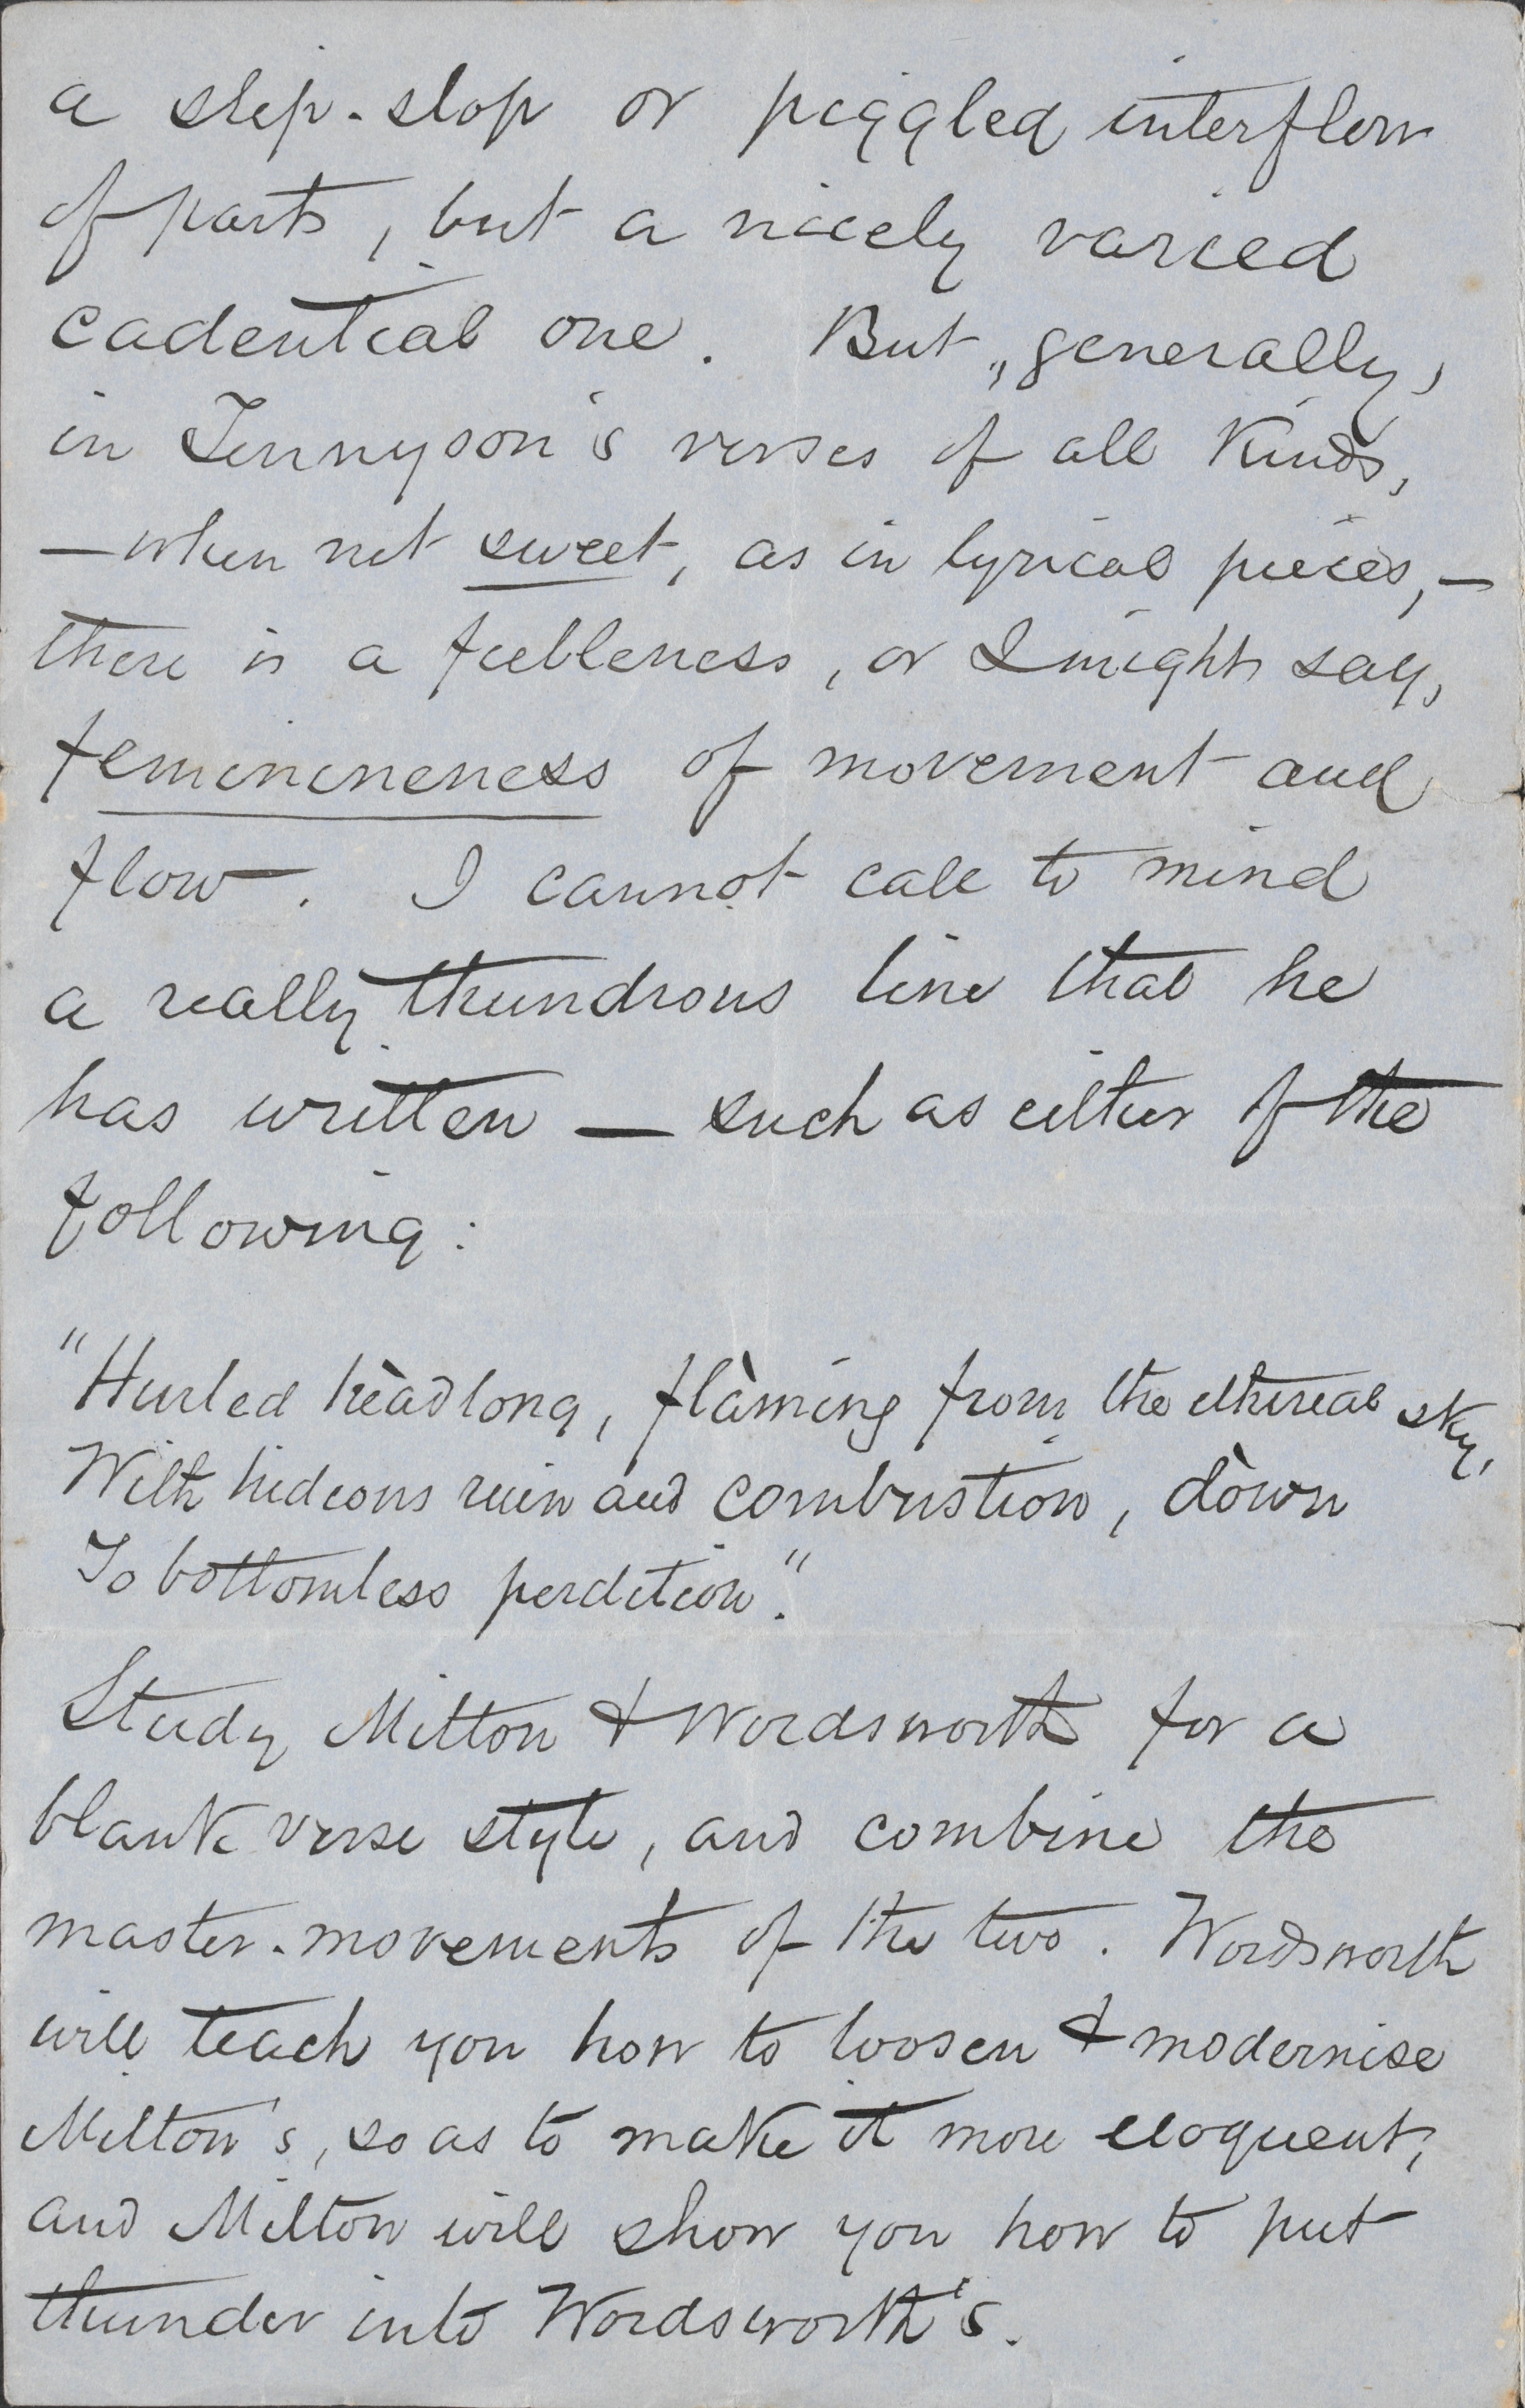 a slip-slop or piggled interflow
of parts, but a nicely varied
cadential one. But, generally,
in Tennyson's verses of all kinds,
—when not sweet, as in lyrical pieces,—
there is a feebleness, or I might say,
feminineness of movement and
flow. I cannot call to mind
a really thundrous line that he
has written — such as either of the
following:
"Hurled hèadlong, flàming from the ethereal sky,
With hideous ruin and combustion, dòwn
To bottomless perdition."
Study Milton & Wordsworth for a
blank verse style, and combine the
master-movements of the two. Wordsworth
will teach you how to loosen & modernise
Milton's, so as to make it more eloquent,
and Milton will show you how to put
thunder into Wordsworth's.